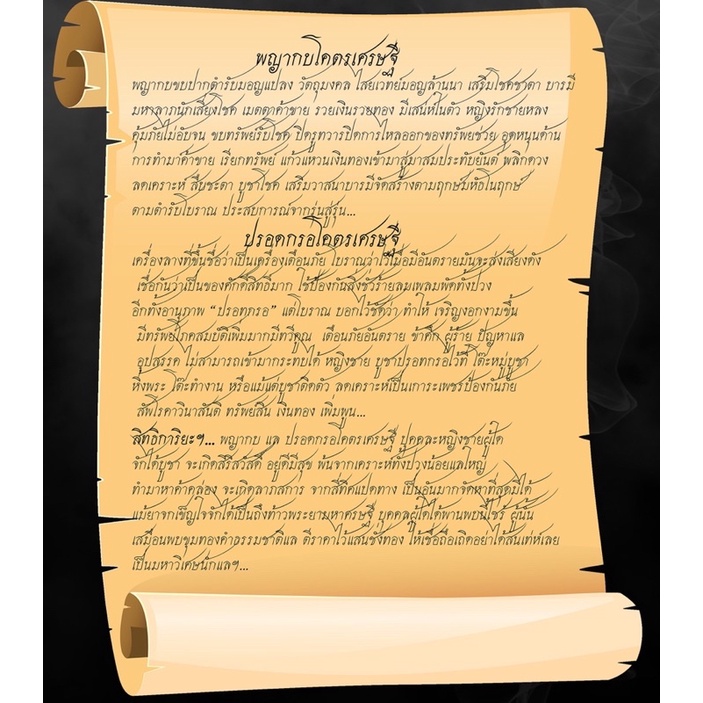 พญากบโคตรเศรษฐี
พญากบขบปากตำรับมอญแปลง วัตถุมงคล ไสยเวทย์มอญล้านนา เสริมโชคชาตา บารมี
มหาลาภนักเสี่ยงโชค เมตตาค้าขาย รวยเงินรวยทอง มีเสน่ห์ในตัว หญิงรักชายหลง
คุ้มภัยไม่อับจน ขบทรัพย์รับโชค ปิดรูทวารปิดการไหลออกของทรัพย์ช่วย อุดหนุนด้าน
การทำมาค้าขาย เรียกทรัพย์ แก้วแหวนเงินทองเข้ามาสู่มาสมประทับยันต์ พลิกดวง
ลดเคราะห์ สืบชะตา บูชาโชค เสริมวาสนาบารมีจัดสร้างตามฤกษ์มหัธโนฤกษ์
ตามตำรับโบราณ ประสบการณ์จากรุ่นสู่รุ่น...
ปรอดกรอโคตรเศรษฐี
เครื่องลางที่ขึ้นชื่อว่าเป็นเครื่องเตือนภัย โบราณว่าไว้เมื่อมีอันตรายมันจะส่งเสียงดัง
เชื่อกันว่าเป็นของศักดิ์สิทธิ์มาก ใช้ป้องกันสิ่งชั่วร้ายลมเพลมพัดทั้งปวง
อีกทั้งอานุภาพ "ปรอทกรอ" แต่โบราณ บอกไว้ชัดว่า ทำให้ เจริญงอกงามขึ้น
มีทรัพย์โภคสมบัติเพิ่มมากมีทวีคูณ เตือนภัยอันตราย ข้าศึก ผู้ร้าย ปัญหาแล
อุปสรรค ไม่สามารถเข้ามากระทบได้ หญิงชาย บูชาปรอทกรอไว้ที่ โต๊ะหมู่บูชา
หิ้งพระ โต๊ะทำงาน หรือแม้แต่บูชาติดตัว ลดเคราะห์เป็นเกาะเพชรป้องกันภัย
สัพโรคาวินาสันติ ทรัพย์สิน เงินทอง เพิ่มพูน...
สิทธิการิยะฯ... พญากบ แล ปรอดกรอโคตรเศรษฐี บุคคลหญิงชายผู้ใด
จักได้บูชา จะเกิดสิริสวัสดิ์ อยู่ดีมีสุข พ้นจากเคราะห์ทั้งปวงน้อยแลใหญ่
ทำมาหาค้าคล่อง จะเกิดลาภสการ จากสี่ทิศแปดทาง เป็นอันมากจัดหาที่สุดมิได้
แม้ยาจกเข็ญใจจักได้เป็นถึงท้าวพระยามหาเศรษฐี บุคคลผู้ใดได้พานพบนี้ไซร้ ผู้นั้น
เสมือนพบขุมทองคำธรรมชาติแล ตีราคาไว้แสนชั่งทอง ให้เชื่อถือเถิดอย่าได้สนเท่ห์เลย
เป็นมหาวิเศษนักแลฯ...